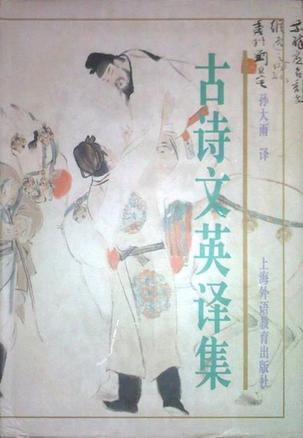 古诗文英译集
孙大雨 译
上海外语教育出版社